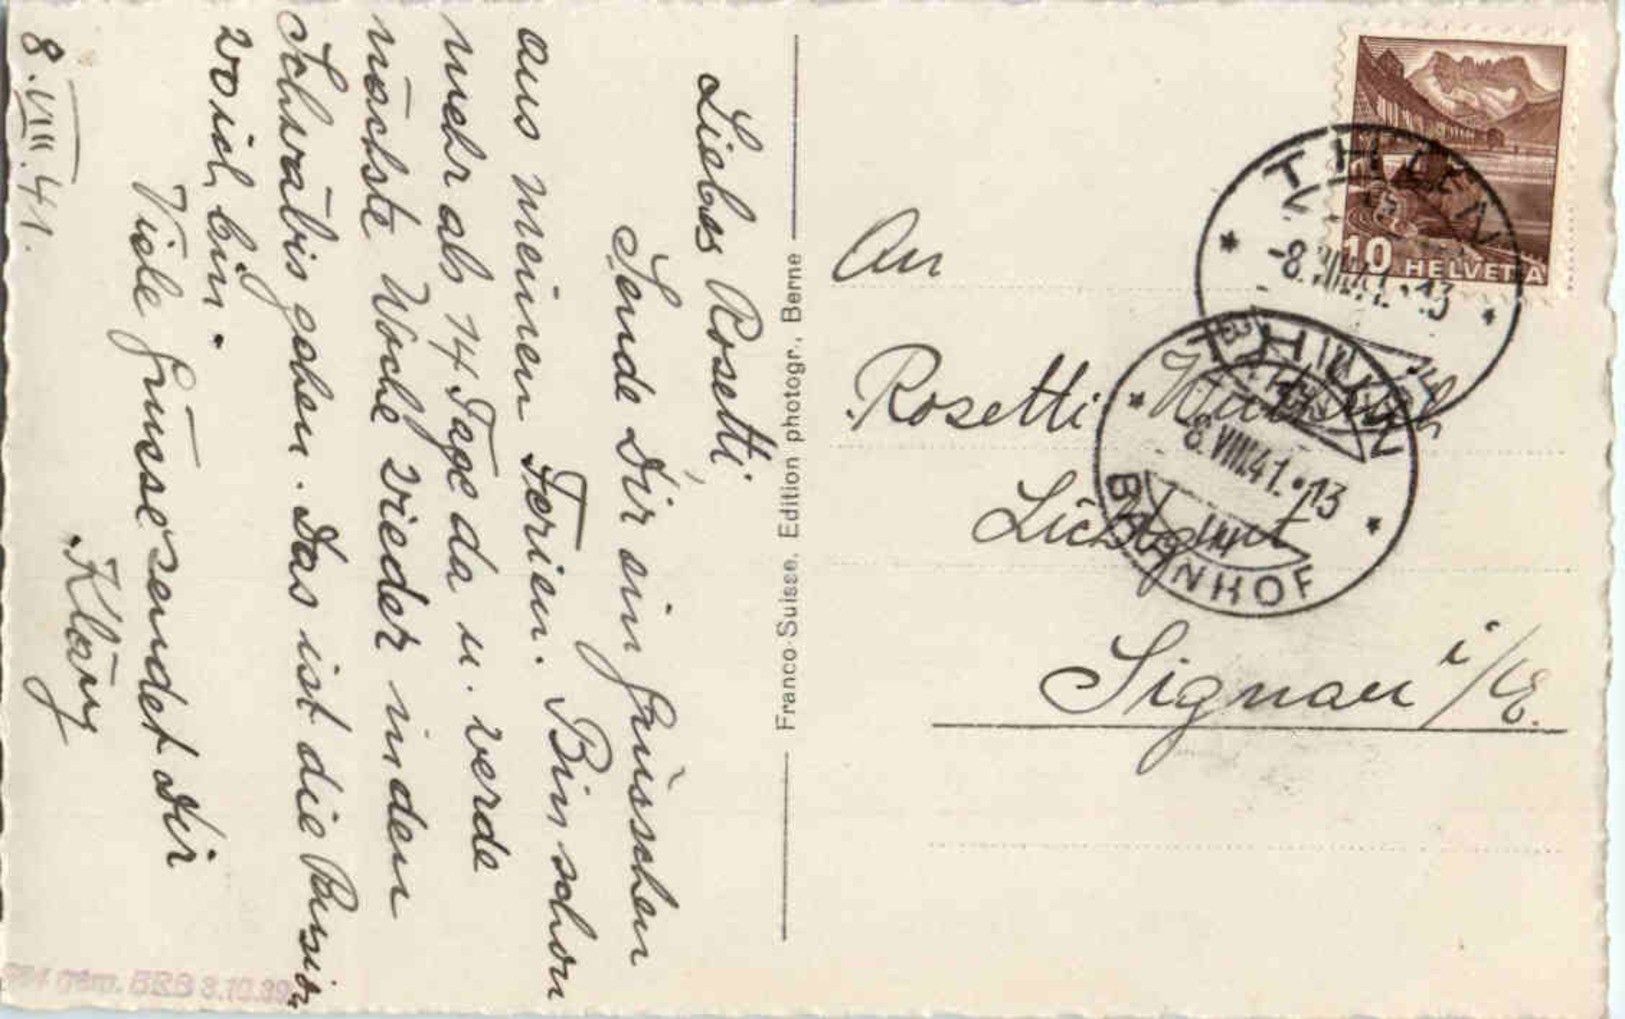 Liebes Rosetti,
Sende Dir ein Grüsschen
aus meinen Ferien. Bin schon
mehr als 14 Tage da u. werde
nächste Woche wieder in den
Schwäbis gehen. Das ist die Pension
wo ich bin.
Viele Grüsse sendet Dir
Kläry
8.VIII.41.
Franco-Suisse, Edition photogr., Berne
An
Rosetti
Signau i/E.
10 HELVETIA
THUN
-8.VIII.41.•13
THUN
8.VIII.41.•13
BAHNHOF
BRB 3.10.39